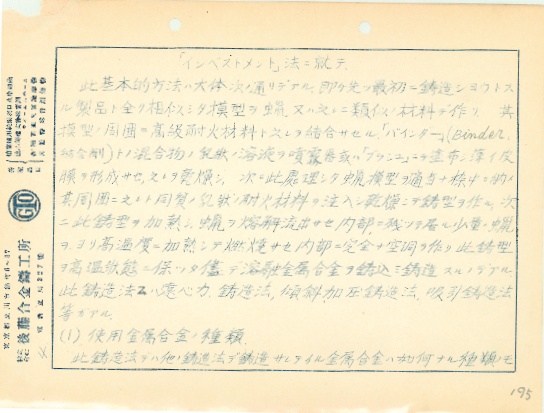 「インベストメント」法ニ就テ
此基本的方法ハ大体次ノ通リデアル、即チ先ヅ最初ニ鋳造シヨウトス
ル製品ト全ク相似シタ模型ヲ蝋又ハ之ニ類似ノ材料デ作リ 其
模型ノ周囲ニ高級耐火材料ト之レヲ結合サセル「バインダー」(Binder,
結合剤)トノ混合物ノ乳状ノ溶液ヲ噴霧器或ハ ニテ塗布シ薄イ皮
膜ヲ形成サセ之レヲ乾燥シ、次ニ此処理シタ蝋模型ヲ適当ナ枠ノ中ニ納メ
其周囲ニ之レト同質ノ乳状ノ耐火材料ヲ注入シ乾燥シテ鋳型ヲ作ル、次
ニ此鋳型ヲ加熱シ、蝋ヲ熔解流出サセ内部ニ残ツテ居ル少量ノ蝋
ヲヨリ高温度ニ加熱シテ燃焼サセ内部ニ完全ナ空洞ヲ作リ此鋳型
ヲ高温状態ニ保ツタ儘デ溶融金属合金ヲ鋳込ミ鋳造スルノデアル、
此鋳造法ニハ遠心力鋳造法、傾斜加圧鋳造法、吸引鋳造法
等ガアル、
(1) 使用金属合金ノ種類
此鋳造法デハ他ノ鋳造法デ鋳造サレテイル金属合金ハ如何ナル種類ノモ
後藤合金鋳工所
GTO
195